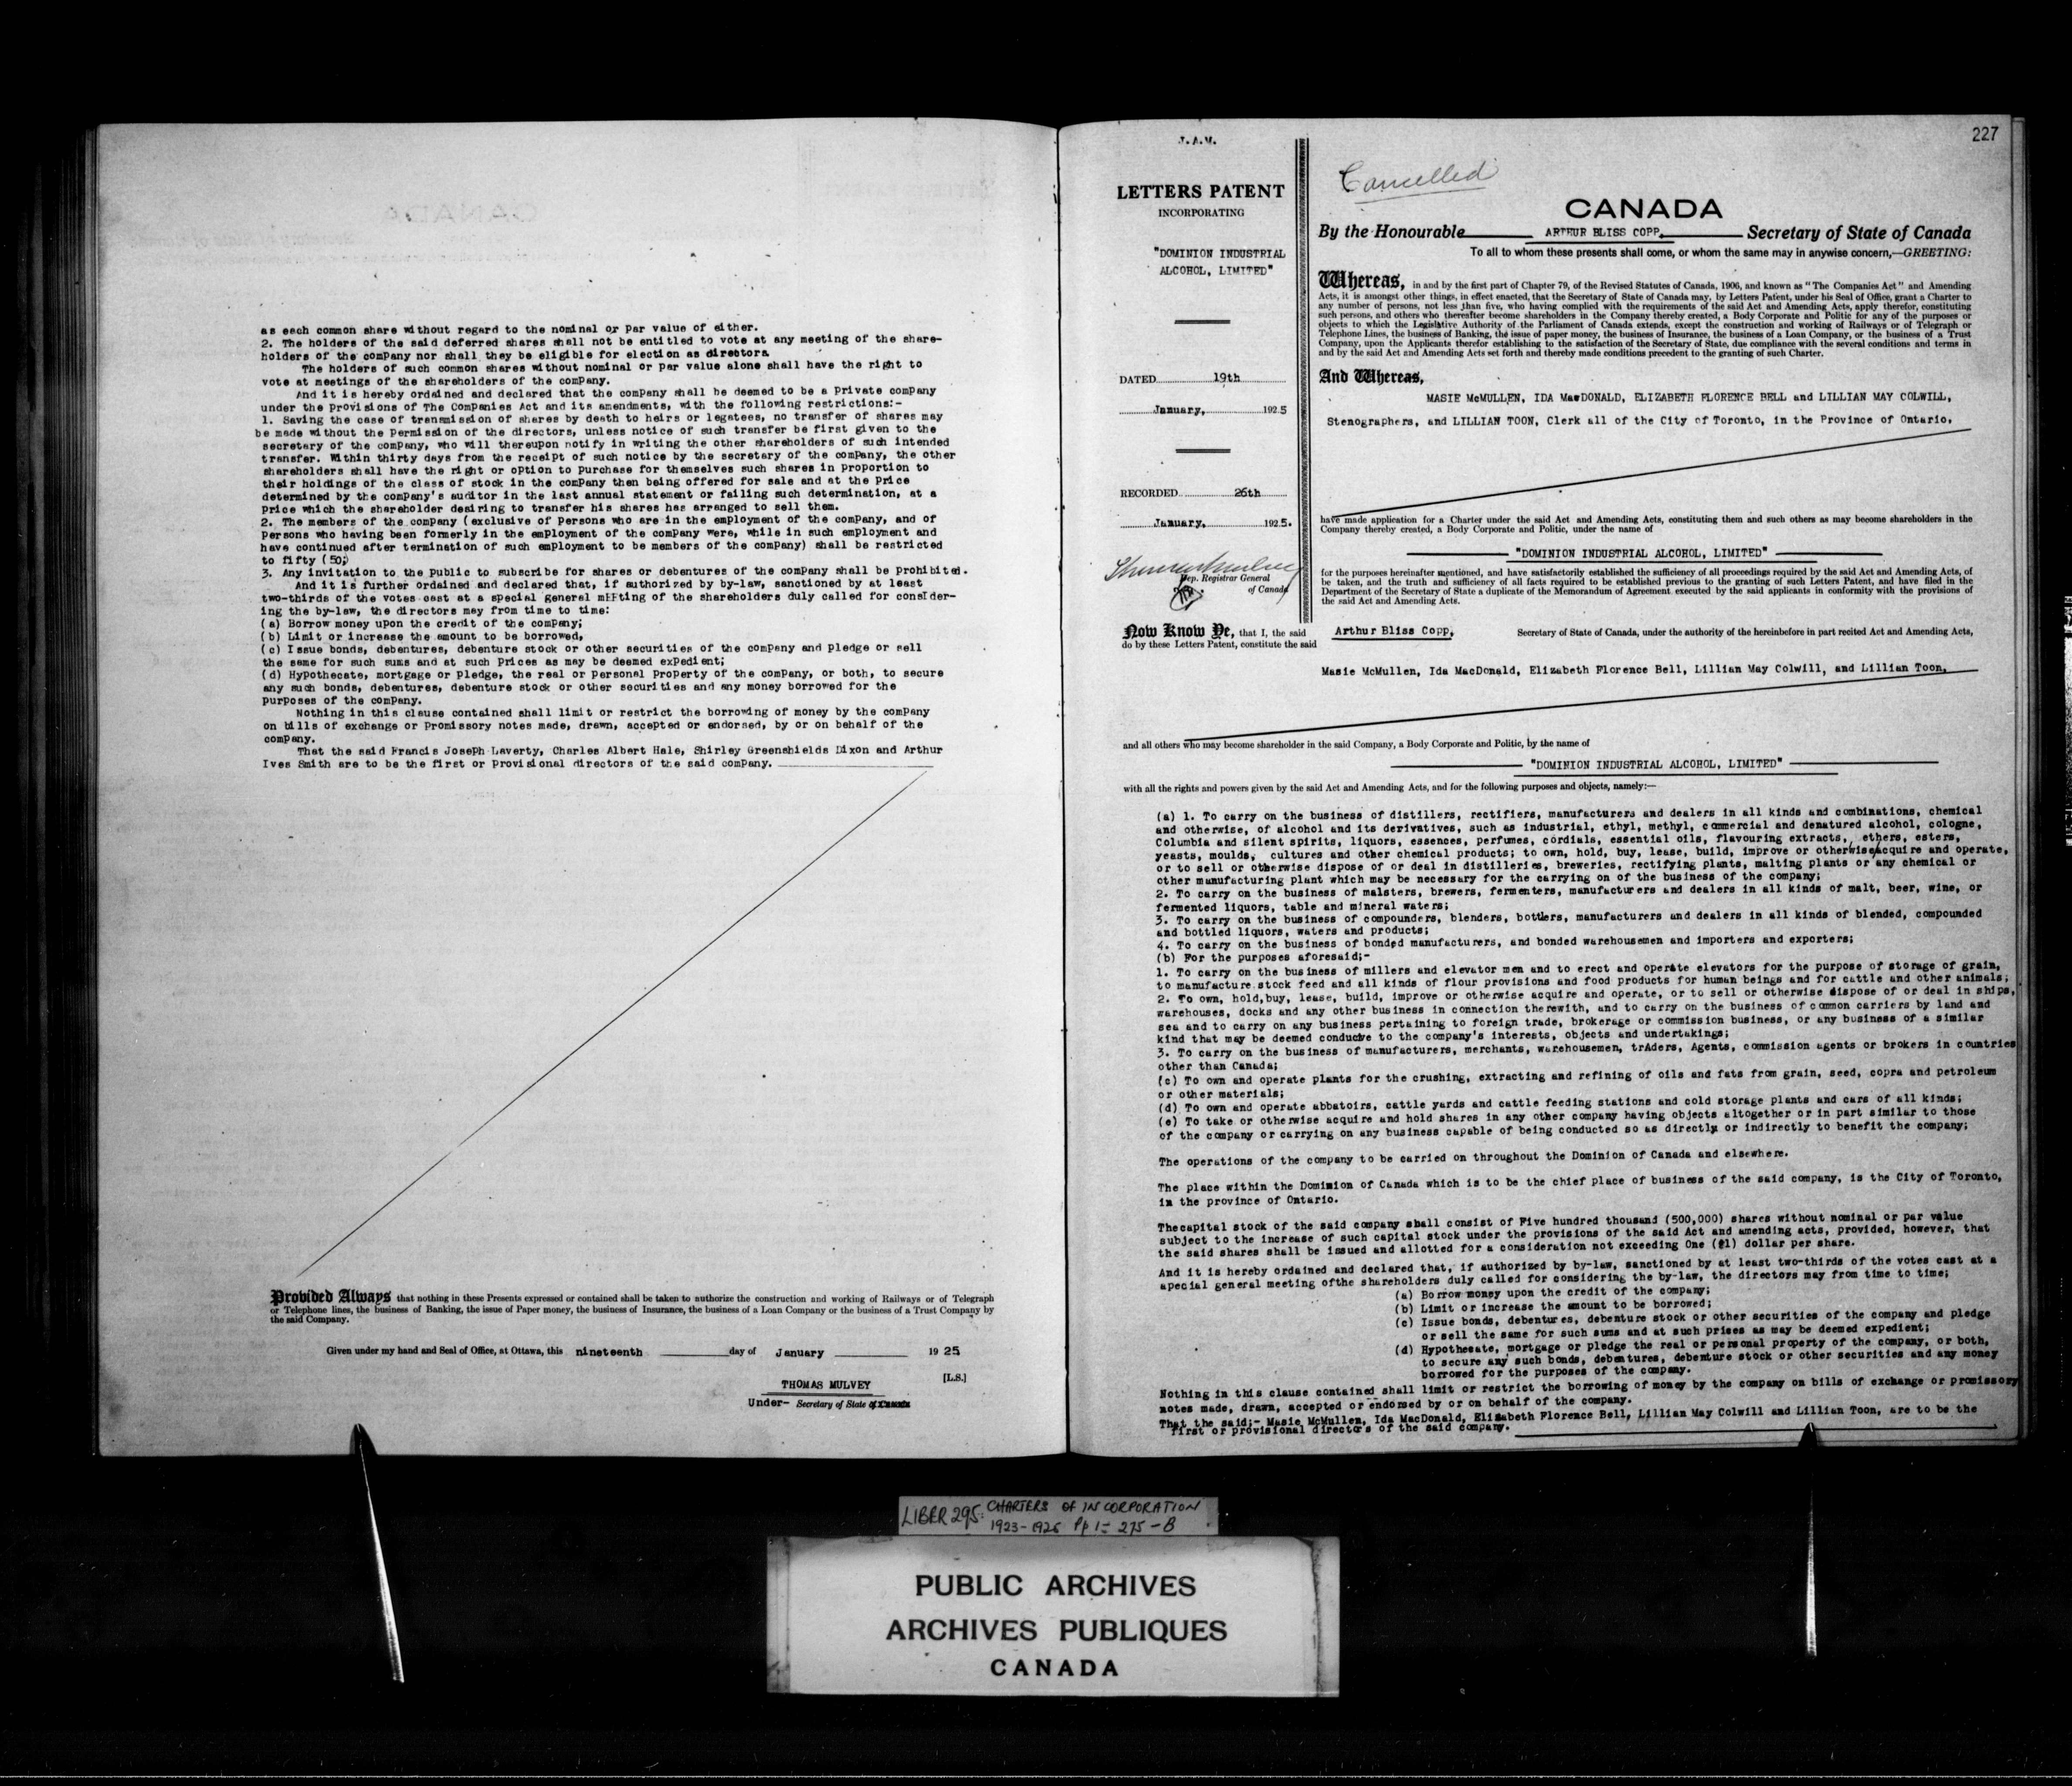 as each common share without regard to the nominal or par value of either.
2. The holders of the said deferred shares shall not be entitled to vote at any meeting of the share-
holders of the company nor shall they be eligible for election as directors
The holders of such common shares without nominal or par value alone shall have the right to
vote at meetings of the shareholders of the company.
And it is hereby ordained and declared that the company shall be deemed to be a private company
under the provisions of The Companies Act and its amendments, with the following restrictions:-
1. Saving the case of transmission of shares by death to heirs or legatees, no transfer of shares may
be made without the permission of the directors, unless notice of such transfer be first given to the
secretary of the company, who will thereupon notify in writing the other shareholders of such intended
transfer. Within thirty days from the receipt of such notice by the secretary of the company, the other
shareholders shall have the right or option to purchase for themselves such shares in proportion to
their holdings of the class of stock in the company then being offered for sale and at the price
determined by the company's auditor in the last annual statement or failing such determination, at a
price which the shareholder desiring to transfer his shares has arranged to sell them.
2. The members of the company (exclusive of persons who are in the employment of the company, and of
persons who having been formerly in the employment of the company were, while in such employment and
have continued after termination of such employment to be members of the company) shall be restricted
to fifty (50;)
3. Any invitation to the public to subscribe for shares or debentures of the company shall be prohibited.
And it is further ordained and declared that, if authorized by by-law, sanctioned by at least
two-thirds of the votes cast at a special general mEEting of the shareholders duly called for consider-
ing the by-law, the directors may from time to time:
(a) Borrow money upon the credit of the company;
(b) Limit or increase the amount to be borrowed,
(c) Issue bonds, debentures, debenture stock or other securities of the company and pledge or sell
the same for such sums and at such prices as may be deemed expedient;
(d) Hypothecate, mortgage or pledge, the real or personal property of the company, or both, to secure
any such bonds, debentures, debenture stock or other securities and any money borrowed for the
purposes of the company.
Nothing in this clause contained shall limit or restrict the borrowing of money by the company
on bills of exchange or promissory notes made, drawn, accepted or endorsed, by or on behalf of the
company.
That the said Francis Joseph Laverty, Charles Albert Hale, Shirley Greenshields Dixon and Arthur
Ives Smith are to be the first or provisional directors of the said company.
Provided Always that nothing in these Presents expressed or contained shall be taken to authorize the construction and working of Railways or of Telegraph
or Telephone lines, the business of Banking, the issue of Paper money, the business of Insurance, the business of a Loan Company or the business of a Trust Company by
the said Company.
Given under my hand and Seal of Office, at Ottawa, this nineteenth day of January 19 25
[L.S.]
THOMAS MULVEY
Under- Secretary of State of Canada
227
J.A.M.
LETTERS PATENT
INCORPORATING
"DOMINION INDUSTRIAL
ALCOHOL, LIMITED"
DATED 19th
January, 1925
RECORDED 26th
January, 1925.
Dep. Registrar General
of Canada
Cancelled
CANADA
By the Honourable ARTHUR BLISS COPP, Secretary of State of Canada
To all to whom these presents shall come, or whom the same may in anywise concern,—GREETING:
Whereas, in and by the first part of Chapter 79, of the Revised Statutes of Canada, 1906, and known as "The Companies Act" and Amending
Acts, it is amongst other things, in effect enacted, that the Secretary of State of Canada may, by Letters Patent, under his Seal of Office, grant a Charter to
any number of persons, not less than five, who having complied with the requirements of the said Act and Amending Acts, apply therefor, constituting
such persons, and others who thereafter become shareholders in the Company thereby created, a Body Corporate and Politic for any of the purposes or
objects to which the Legislative Authority of the Parliament of Canada extends, except the construction and working of Railways or of Telegraph or
Telephone Lines, the business of Banking, the issue of paper money, the business of Insurance, the business of a Loan Company, or the business of a Trust
Company, upon the Applicants therefor establishing to the satisfaction of the Secretary of State, due compliance with the several conditions and terms in
and by the said Act and Amending Acts set forth and thereby made conditions precedent to the granting of such Charter.
And Whereas,
MASIE McMULLEN, IDA MacDONALD, ELIZABETH FLORENCE BELL and LILLIAN MAY COLWILL,
Stenographers, and LILLIAN TOON, Clerk all of the City of Toronto, in the Province of Ontario,
have made application for a Charter under the said Act and Amending Acts, constituting them and such others as may become shareholders in the
Company thereby created, a Body Corporate and Politic, under the name of
"DOMINION INDUSTRIAL ALCOHOL, LIMITED"
for the purposes hereinafter mentioned, and have satisfactorily established the sufficiency of all proceedings required by the said Act and Amending Acts, of
be taken, and the truth and sufficiency of all facts required to be established previous to the granting of such Letters Patent, and have filed in the
Department of the Secretary of State a duplicate of the Memorandum of Agreement executed by the said applicants in conformity with the provisions of
the said Act and Amending Acts.
Now Know Ye, that I, the said Arthur Bliss Copp, Secretary of State of Canada, under the authority of the hereinbefore in part recited Act and Amending Acts,
do by these Letters Patent, constitute the said
Masie McMullen, Ida MacDonald, Elizabeth Florence Bell, Lillian May Colwill, and Lillian Toon,
and all others who may become shareholder in the said Company, a Body Corporate and Politic, by the name of
"DOMINION INDUSTRIAL ALCOHOL, LIMITED"
with all the rights and powers given by the said Act and Amending Acts, and for the following purposes and objects, namely:—
(a) 1. To carry on the business of distillers, rectifiers, manufacturers and dealers in all kinds and combinations, chemical
and otherwise, of alcohol and its derivatives, such as industrial, ethyl, methyl, commercial and denatured alcohol, cologne,
Columbia and silent spirits, liquors, essences, perfumes, cordials, essential oils, flavouring extracts, ethers, esters,
yeasts, moulds, cultures and other chemical products; to own, hold, buy, lease, build, improve or otherwise acquire and operate,
or to sell or otherwise dispose of or deal in distilleries, breweries, rectifying plants, malting plants or any chemical or
other manufacturing plant which may be necessary for the carrying on of the business of the company;
2. To carry on the business of malsters, brewers, fermenters, manufacturers and dealers in all kinds of malt, beer, wine, or
fermented liquors, table and mineral waters;
3. To carry on the business of compounders, blenders, bottlers, manufacturers and dealers in all kinds of blended, compounded
and bottled liquors, waters and products;
4. To carry on the business of bonded manufacturers, and bonded warehousemen and importers and exporters;
(b) For the purposes aforesaid;-
1. To carry on the business of millers and elevator men and to erect and operate elevators for the purpose of storage of grain,
to manufacture stock feed and all kinds of flour provisions and food products for human beings and for cattle and other animals;
2. To own, hold,buy, lease, build, improve or otherwise acquire and operate, or to sell or otherwise dispose of or deal in ships,
warehouses, docks and any other business in connection therewith, and to carry on the business of common carriers by land and
sea and to carry on any business pertaining to foreign trade, brokerage or commission business, or any business of a similar
kind that may be deemed conducive to the company's interests, objects and undertakings;
3. To carry on the business of manufacturers, merchants, warehousemen, trAders, Agents, commission agents or brokers in countries
other than Canada;
(c) To own and operate plants for the crushing, extracting and refining of oils and fats from grain, seed, copra and petroleum
or other materials;
(d) To own and operate abbatoirs, cattle yards and cattle feeding stations and cold storage plants and cars of all kinds;
(e) To take or otherwise acquire and hold shares in any other company having objects altogether or in part similar to those
of the company or carrying on any business capable of being conducted so as directly or indirectly to benefit the company;
The operations of the company to be carried on throughout the Dominion of Canada and elsewhere.
The place within the Dominion of Canada which is to be the chief place of business of the said company, is the City of Toronto,
in the province of Ontario.
Thecapital stock of the said company shall consist of Five hundred thousand (500,000) shares without nominal or par value
subject to the increase of such capital stock under the provisions of the said Act and amending acts, provided, however, that
the said shares shall be issued and allotted for a consideration not exceeding One ($1) dollar per share.
And it is hereby ordained and declared that, if authorized by by-law, sanctioned by at least two-thirds of the votes cast at a
apecial general meeting ofthe shareholders duly called for considering the by-law, the directors may from time to time;
(a) Borrow money upon the credit of the company;
(b) Limit or increase the amount to be borrowed;
(c) Issue bonds, debentures, debenture stock or other securities of the company and pledge
or sell the same for such sums and at such prises as may be deemed expedient;
(d) Hypothecate, mortgage or pledge the real or personal property of the company, or both,
to secure any such bonds, debentures, debenture stock or other securities and any money
borrowed for the purposes of the company.
Nothing in this clause contained shall limit or restrict the borrowing of money by the company on bills of exchange or promissory
notes made, drawn, accepted or endorsed by or on behalf of the company.
That the said;- Masie McMullen, Ida MacDonald, Elizabeth Florence Bell, Lillian May Colwill and Lillian Toon, are to be the
first or provisional directors of the said company.
LIBER 295: CHARTERS OF INCORPORATION
1923-1926 Pp 1- 275-B
PUBLIC ARCHIVES
ARCHIVES PUBLIQUES
CANADA